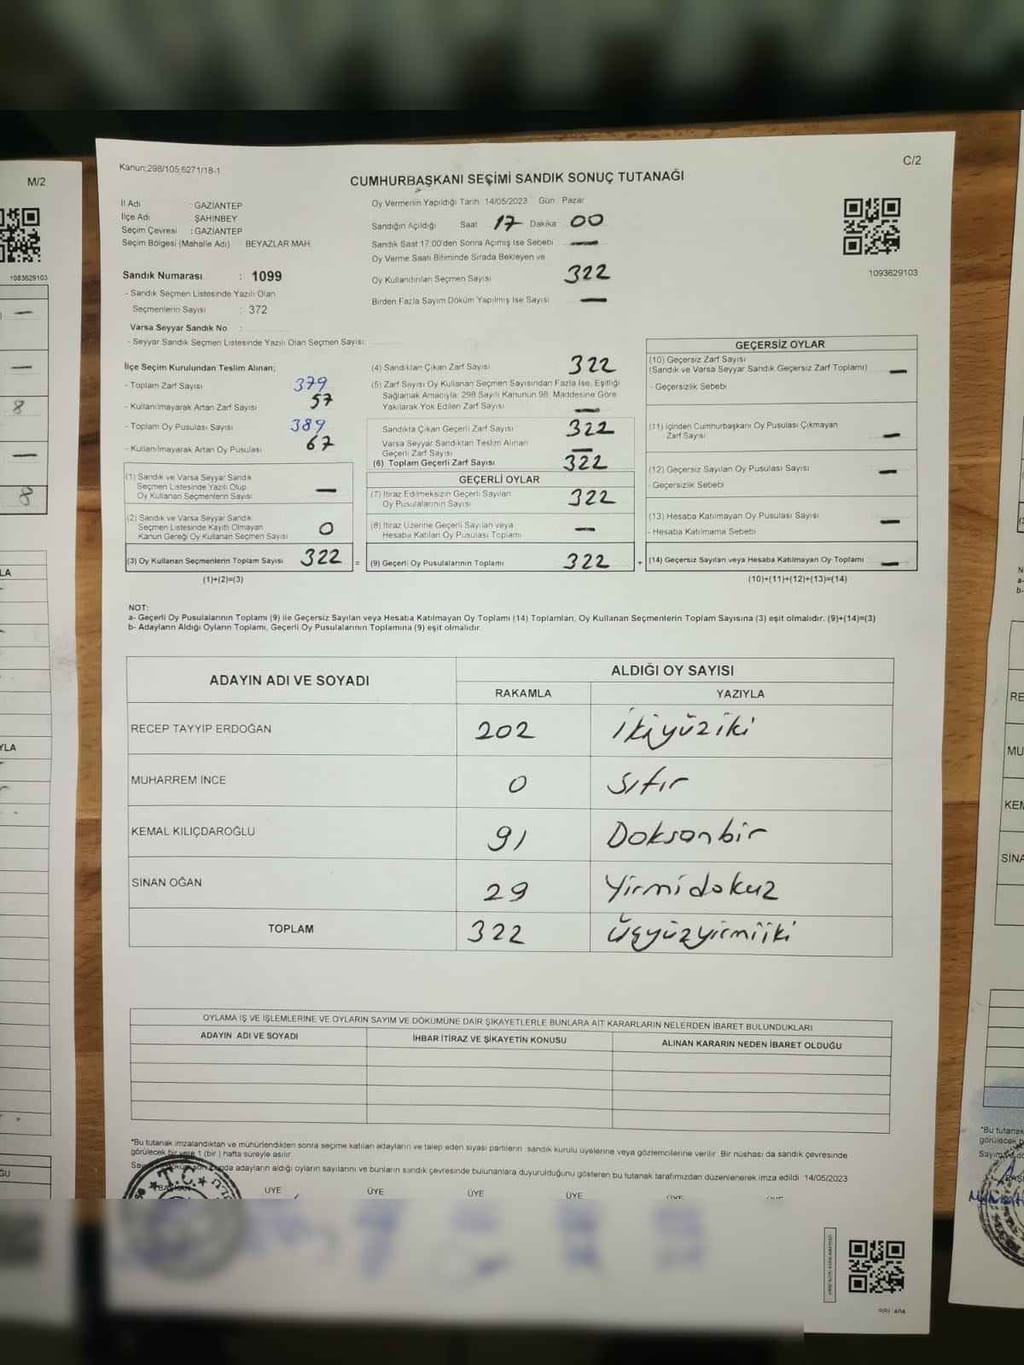 Kanun;298/105,6271/18-1
C/2
CUMHURBAŞKANI SEÇİMİ SANDIK SONUÇ TUTANAĞI
İl Adı : GAZİANTEP
İlçe Adı : ŞAHİNBEY
Seçim Çevresi : GAZİANTEP
Seçim Bölgesi (Mahalle Adı) BEYAZLAR MAH
Sandık Numarası : 1099
- Sandık Seçmen Listesinde Yazılı Olan
Seçmenlerin Sayısı : 372
Varsa Seyyar Sandık No :
- Seyyar Sandık Seçmen Listesinde Yazılı Olan Seçmen Sayısı:
Oy Vermenin Yapıldığı Tarih 14/05/2023 Gün Pazar
Sandığın Açıldığı Saat 17 Dakika 00
Sandık Saat 17.00'den Sonra Açılmış İse Sebebi —
Oy Verme Saati Bitiminde Sırada Bekleyen ve
Oy Kullandırılan Seçmen Sayısı 322
Birden Fazla Sayım Döküm Yapılmış İse Sayısı —
1093629103
İlçe Seçim Kurulundan Teslim Alınan;
- Toplam Zarf Sayısı 379
- Kullanılmayarak Artan Zarf Sayısı 57
- Toplam Oy Pusulası Sayısı 389
- Kullanılmayarak Artan Oy Pusulası 67
(1) Sandık ve Varsa Seyyar Sandık
Seçmen Listesinde Yazılı Olup
Oy Kullanan Seçmenlerin Sayısı —
(2) Sandık ve Varsa Seyyar Sandık
Seçmen Listesinde Kayıtlı Olmayan
Kanun Gereği Oy Kullanan Seçmen Sayısı 0
(3) Oy Kullanan Seçmenlerin Toplam Sayısı 322 =
(1)+(2)=(3)
(4) Sandıktan Çıkan Zarf Sayısı 322
(5) Zarf Sayısı Oy Kullanan Seçmen Sayısından Fazla İse, Eşitliği
Sağlamak Amacıyla; 298 Sayılı Kanunun 98. Maddesine Göre
Yakılarak Yok Edilen Zarf Sayısı —
Sandıkta Çıkan Geçerli Zarf Sayısı 322
Varsa Seyyar Sandıktan Teslim Alınan
Geçerli Zarf Sayısı —
(6) Toplam Geçerli Zarf Sayısı 322
GEÇERLİ OYLAR
(7) İtiraz Edilmeksizin Geçerli Sayılan
Oy Pusulalarının Sayısı 322
(8) İtiraz Üzerine Geçerli Sayılan veya
Hesaba Katılan Oy Pusulası Toplamı —
(9) Geçerli Oy Pusulalarının Toplamı 322 +
GEÇERSİZ OYLAR
(10) Geçersiz Zarf Sayısı
(Sandık ve Varsa Seyyar Sandık Geçersiz Zarf Toplamı) —
- Geçersizlik Sebebi
(11) İçinden Cumhurbaşkanı Oy Pusulası Çıkmayan
Zarf Sayısı —
(12) Geçersiz Sayılan Oy Pusulası Sayısı —
- Geçersizlik Sebebi
(13) Hesaba Katılmayan Oy Pusulası Sayısı —
- Hesaba Katılmama Sebebi
(14) Geçersiz Sayılan veya Hesaba Katılmayan Oy Toplamı —
(10)+(11)+(12)+(13)=(14)
NOT:
a- Geçerli Oy Pusulalarının Toplamı (9) ile Geçersiz Sayılan veya Hesaba Katılmayan Oy Toplamı (14) Toplamları, Oy Kullanan Seçmenlerin Toplam Sayısına (3) eşit olmalıdır. (9)+(14)=(3)
b- Adayların Aldığı Oyların Toplamı, Geçerli Oy Pusulalarının Toplamına (9) eşit olmalıdır.
ADAYIN ADI VE SOYADI ALDIĞI OY SAYISI
RAKAMLA YAZIYLA
RECEP TAYYİP ERDOĞAN 202 İkiyüziki
MUHARREM İNCE 0 Sıfır
KEMAL KILIÇDAROĞLU 91 Doksanbir
SİNAN OĞAN 29 Yirmidokuz
TOPLAM 322 Üçyüzyirmiiki
OYLAMA İŞ VE İŞLEMLERİNE VE OYLARIN SAYIM VE DÖKÜMÜNE DAİR ŞİKAYETLERLE BUNLARA AİT KARARLARIN NELERDEN İBARET BULUNDUKLARI
ADAYIN ADI VE SOYADI İHBAR İTİRAZ VE ŞİKAYETİN KONUSU ALINAN KARARIN NEDEN İBARET OLDUĞU
*Bu tutanak imzalandıktan ve mühürlendikten sonra seçime katılan adayların ve talep eden siyasi partilerin sandık kurulu üyelerine veya gözlemcilerine verilir. Bir nüshası da sandık çevresinde
görülecek bir yere 1 (bir) hafta süreyle asılır.
adayların aldığı oyların sayılarını ve bunların sandık çevresinde bulunanlara duyurulduğunu gösteren bu tutanak tarafımızdan düzenlenerek imza edildi 14/05/2023
T.C.
ÜYE ÜYE ÜYE ÜYE
M/2
1083629103
8
8